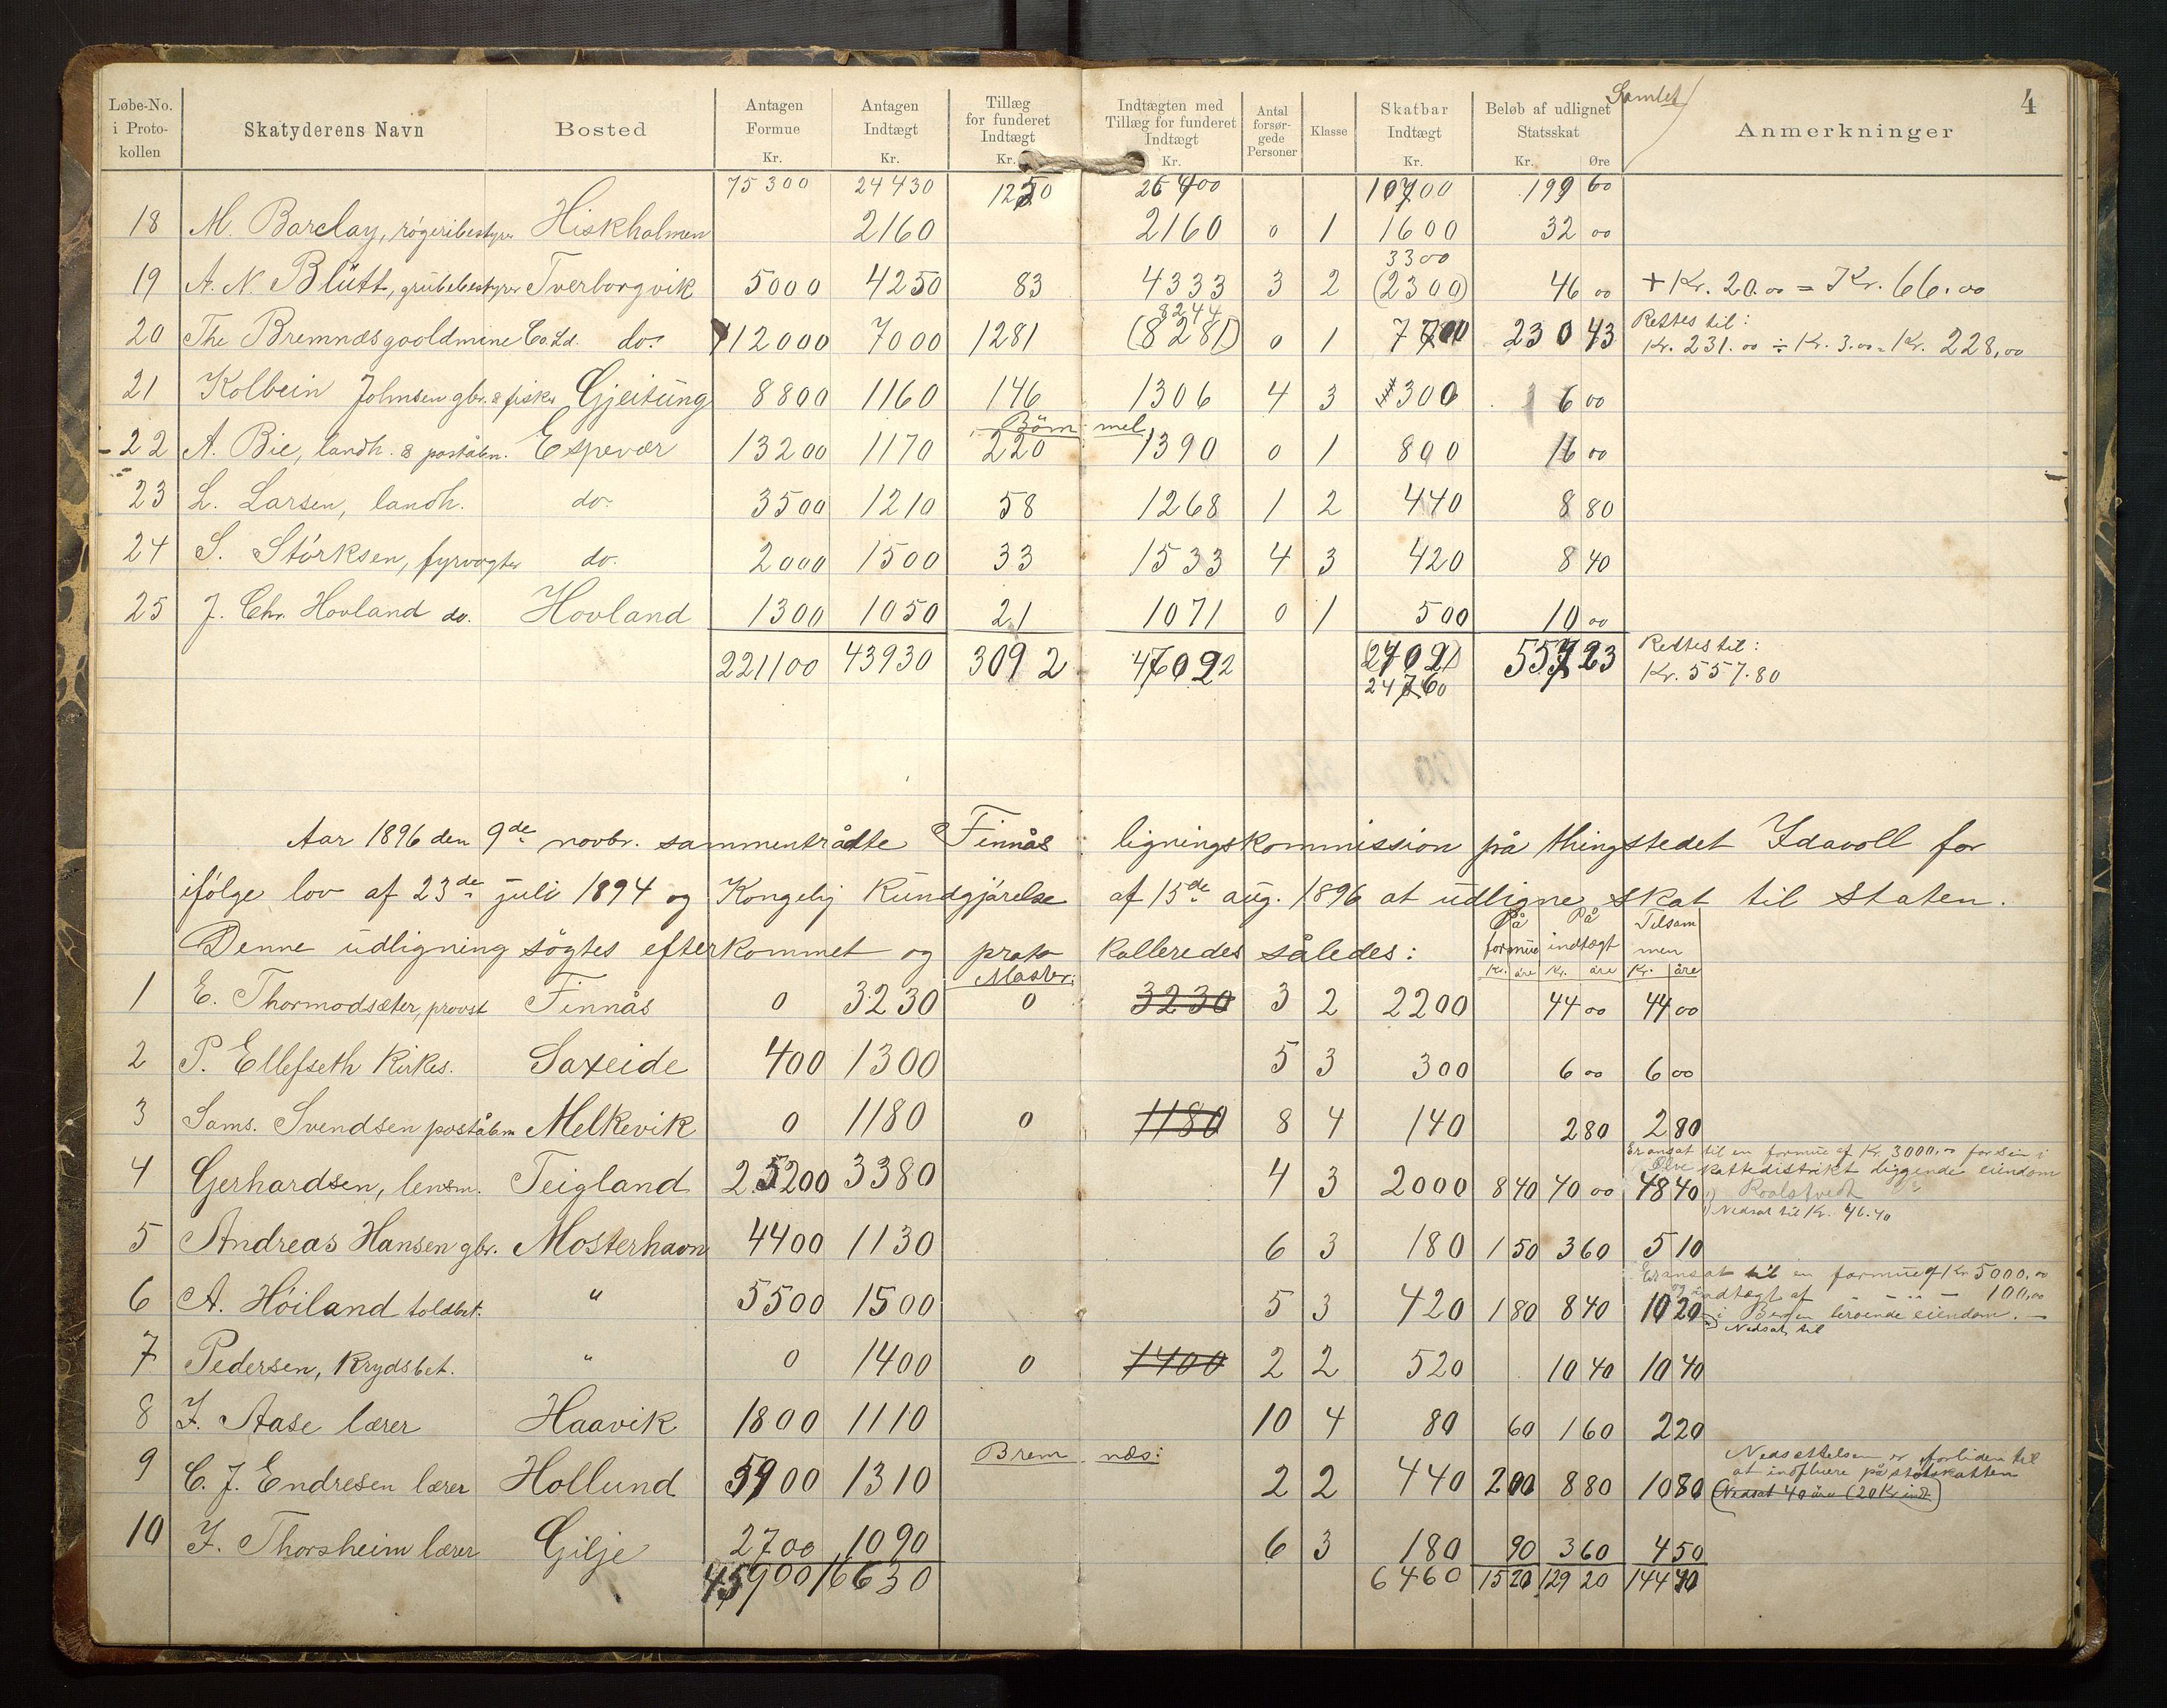 Samlet
4
Løbe-No. i Proto-kollen | Skatyderens Navn | Bosted | Antagen Formue Kr. | Antagen Indtægt Kr. | Tillæg for funderet Indtægt Kr. | Indtægten med Tillæg for funderet Indtægt Kr. | Antal forsør-gede Personer | Klasse | Skatbar Indtægt Kr. | Beløb af udlignet Statsskat Kr. Øre | Anmerkninger
75300 24430 1250 26400 10700 199 60
18 M. Barclay, røgeribestyrer Hiskholmen 2160 2160 0 1 1600 32 00
3300
19 A. N. Blütt, grubebestyrer Tverborgvik 5000 4250 83 4333 3 2 (2300) 46 00 + Kr. 20.00 = Kr. 66.00
8244
20 The Bremnæsgooldmine Co. Ld. do. 112000 7000 1281 (8281) 0 1 7700 230 43 Rettes til:
Kr. 231.00 ÷ Kr. 3.00 = Kr. 228,00
21 Kolbein Johnsen gbr. & fisker Gjeitung 8800 1160 146 1306 4 3 300 6 00
Bömmel
22 A. Bie, landh. & poståbn. Espevær 13200 1170 220 1390 0 1 800 16 00
23 L. Larsen, landh. do. 3500 1210 58 1268 1 2 440 8 80
24 S. Störksen, fyrvogter do. 2000 1500 33 1533 4 3 420 8 40
25 J. Chr. Hovland do. Hovland 1300 1050 21 1071 0 1 500 10 00
221100 43930 3092 47092 557 23 Rettes til:
24760 Kr. 557.80
Aar 1896 den 9de novbr. sammentrådte Finnås ligningskommission på thingstedet Idavoll for
ifölge lov af 23de juli 1894 og Kongelig Kundgjörelse af 15de aug. 1896 at udligne skat til Staten.
Denne udligning sögtes efterkommet og protokolleredes således:
På formue Kr. öre | På indtægt Kr. öre | Tilsammen Kr. öre
Moster:
1 E. Thormodsæter, provst Finnås 0 3230 0 3230 3 2 2200 44 00 44 00
2 P. Ellefseth Kirkes. Saxeide 400 1300 5 3 300 6 00 6 00
3 Sams. Svendsen poståbn Melkevik 0 1180 0 1180 8 4 140 2 80 2 80
Er ansat til en formue af Kr. 3000,00 for sin i
Ølve skattedistrikt liggende eiendom
4 Gerhardsen, lensm. Teigland 25200 3380 4 3 2000 8 40 40 00 48 40
Nedsat til Kr. 46.40
5 Andreas Hansen gbr. Mosterhavn 4400 1130 6 3 180 1 50 3 60 5 10
Er ansat til en formue af Kr 5000,00
og indtægt af " " 100,00
6 A. Höiland toldbet. " 5500 1500 5 3 420 1 80 8 40 10 20 i Bergen beroende eiendom.
Nedsat til
7 Pedersen, Krydsbet. " 0 1400 0 1400 2 2 520 10 40 10 40
8 J. Aase lærer Haavik 1800 1110 10 4 80 60 1 60 2 20
Bremnæs:
Nedsættelsen er forliden til
at influere på statskatten
9 C. J. Endresen lærer Hollund 5900 1310 2 2 440 2 00 8 80 10 80 (Nedsat 40 öre (20 Kr indt)
10 J. Thorsheim lærer Gilje 2700 1090 6 3 180 90 3 60 4 50
45900 16630 6460 15 20 129 20 144 40